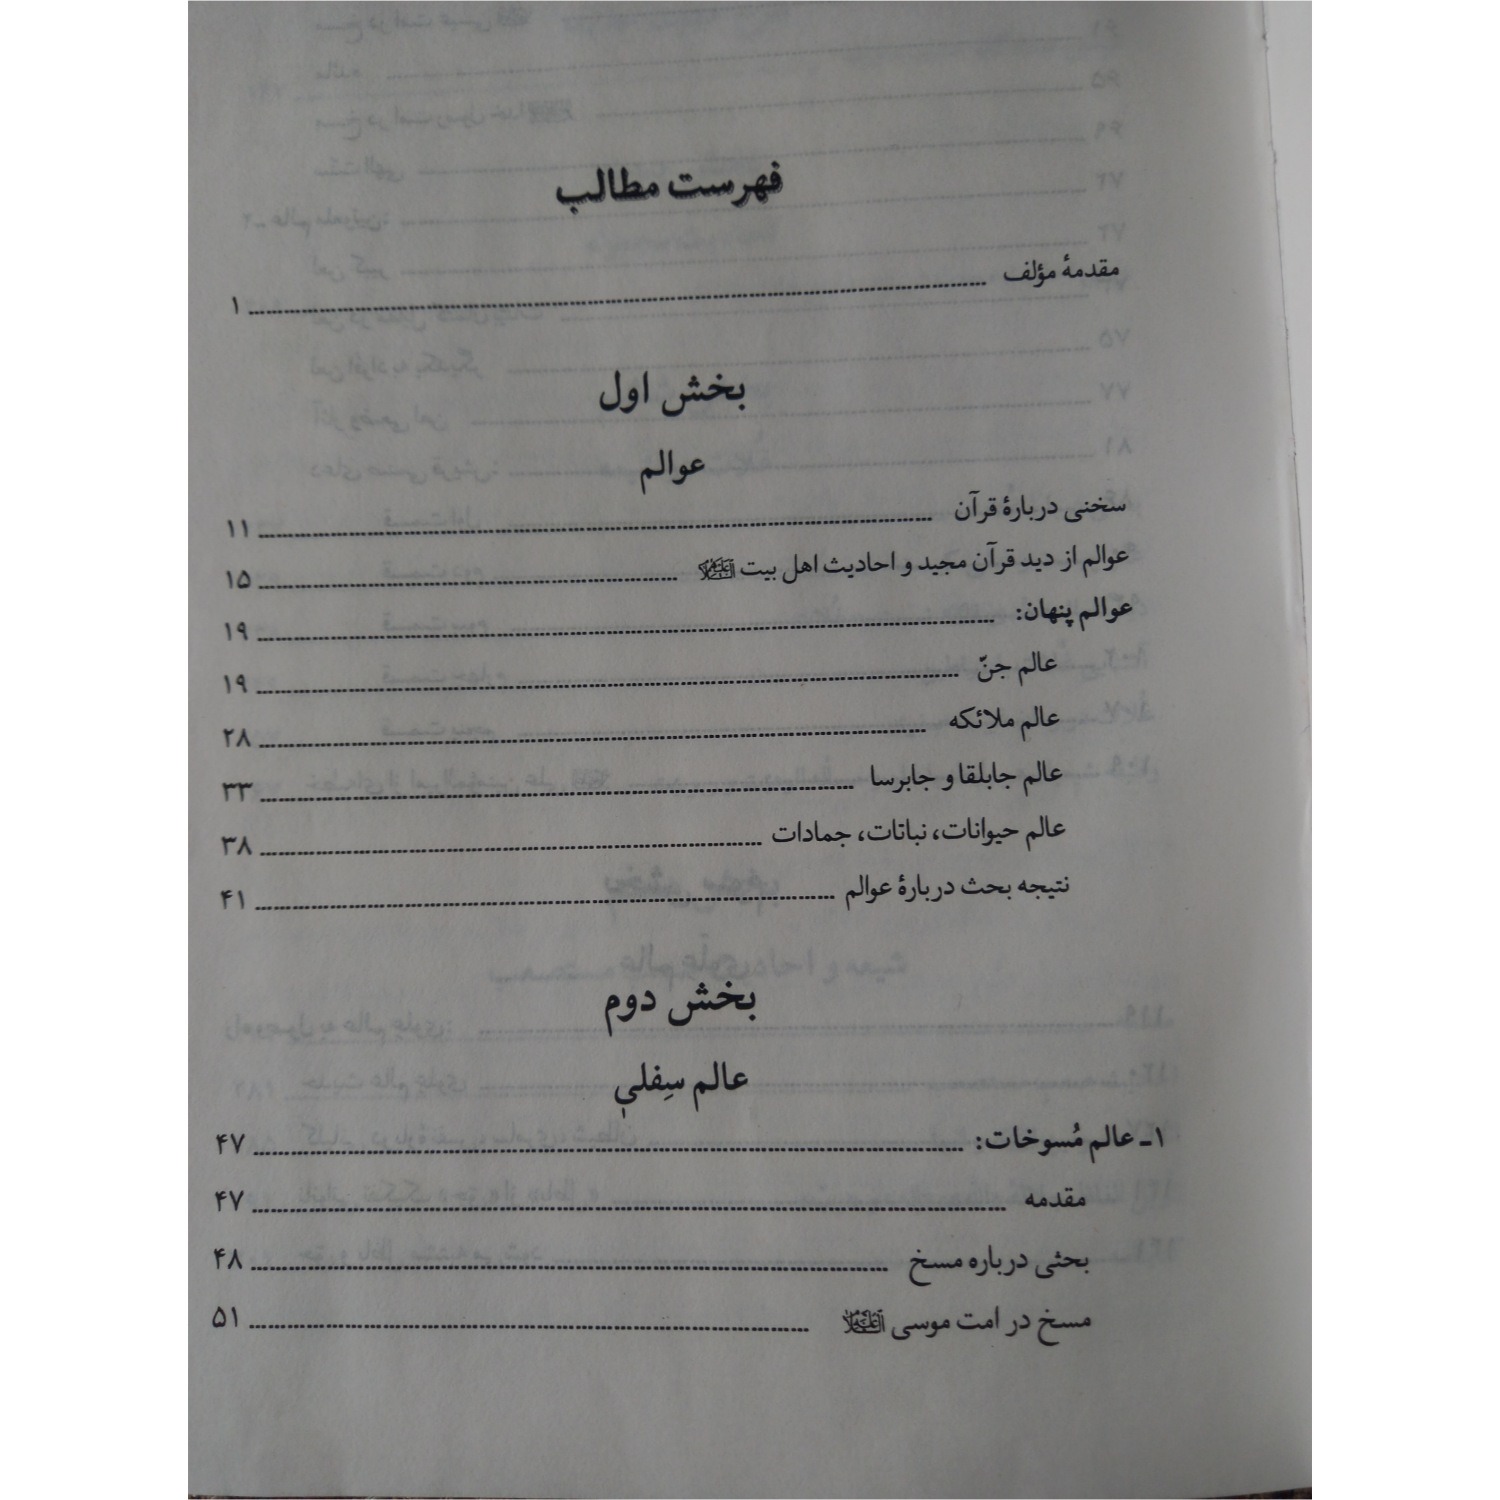 فهرست مطالب
مقدمهٔ مؤلف ........ ۱
بخش اول
عوالم
سخنی دربارهٔ قرآن ........ ۱۱
عوالم از دید قرآن مجید و احادیث اهل بیت ........ ۱۵
عوالم پنهان: ........ ۱۹
عالم جنّ ........ ۱۹
عالم ملائکه ........ ۲۸
عالم جابلقا و جابرسا ........ ۳۳
عالم حیوانات، نباتات، جمادات ........ ۳۸
نتیجه بحث دربارهٔ عوالم ........ ۴۱
بخش دوم
عالم سِفلی
۱ـ عالم مُسوخات: ........ ۴۷
مقدمه ........ ۴۷
بحثی درباره مسخ ........ ۴۸
مسخ در امت موسی ........ ۵۱